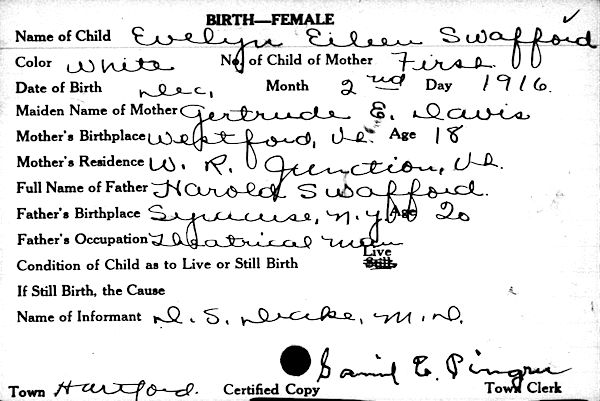 BIRTH—FEMALE
Name of Child Evelyn Eileen Swafford
Color White No. of Child of Mother First
Date of Birth Dec. Month 2nd Day 1916.
Maiden Name of Mother Gertrude E. Davis
Mother's Birthplace Westford, Vt. Age 18
Mother's Residence W. R. Junction, Vt.
Full Name of Father Harold Swafford.
Father's Birthplace Syracuse, N.Y. Age 20
Father's Occupation Theatrical Man
Condition of Child as to Live or Still Birth Live Still.
If Still Birth, the Cause
Name of Informant D. S. Drake, M.D.
Saml E. Pingree
Town Hartford. Certified Copy Town Clerk